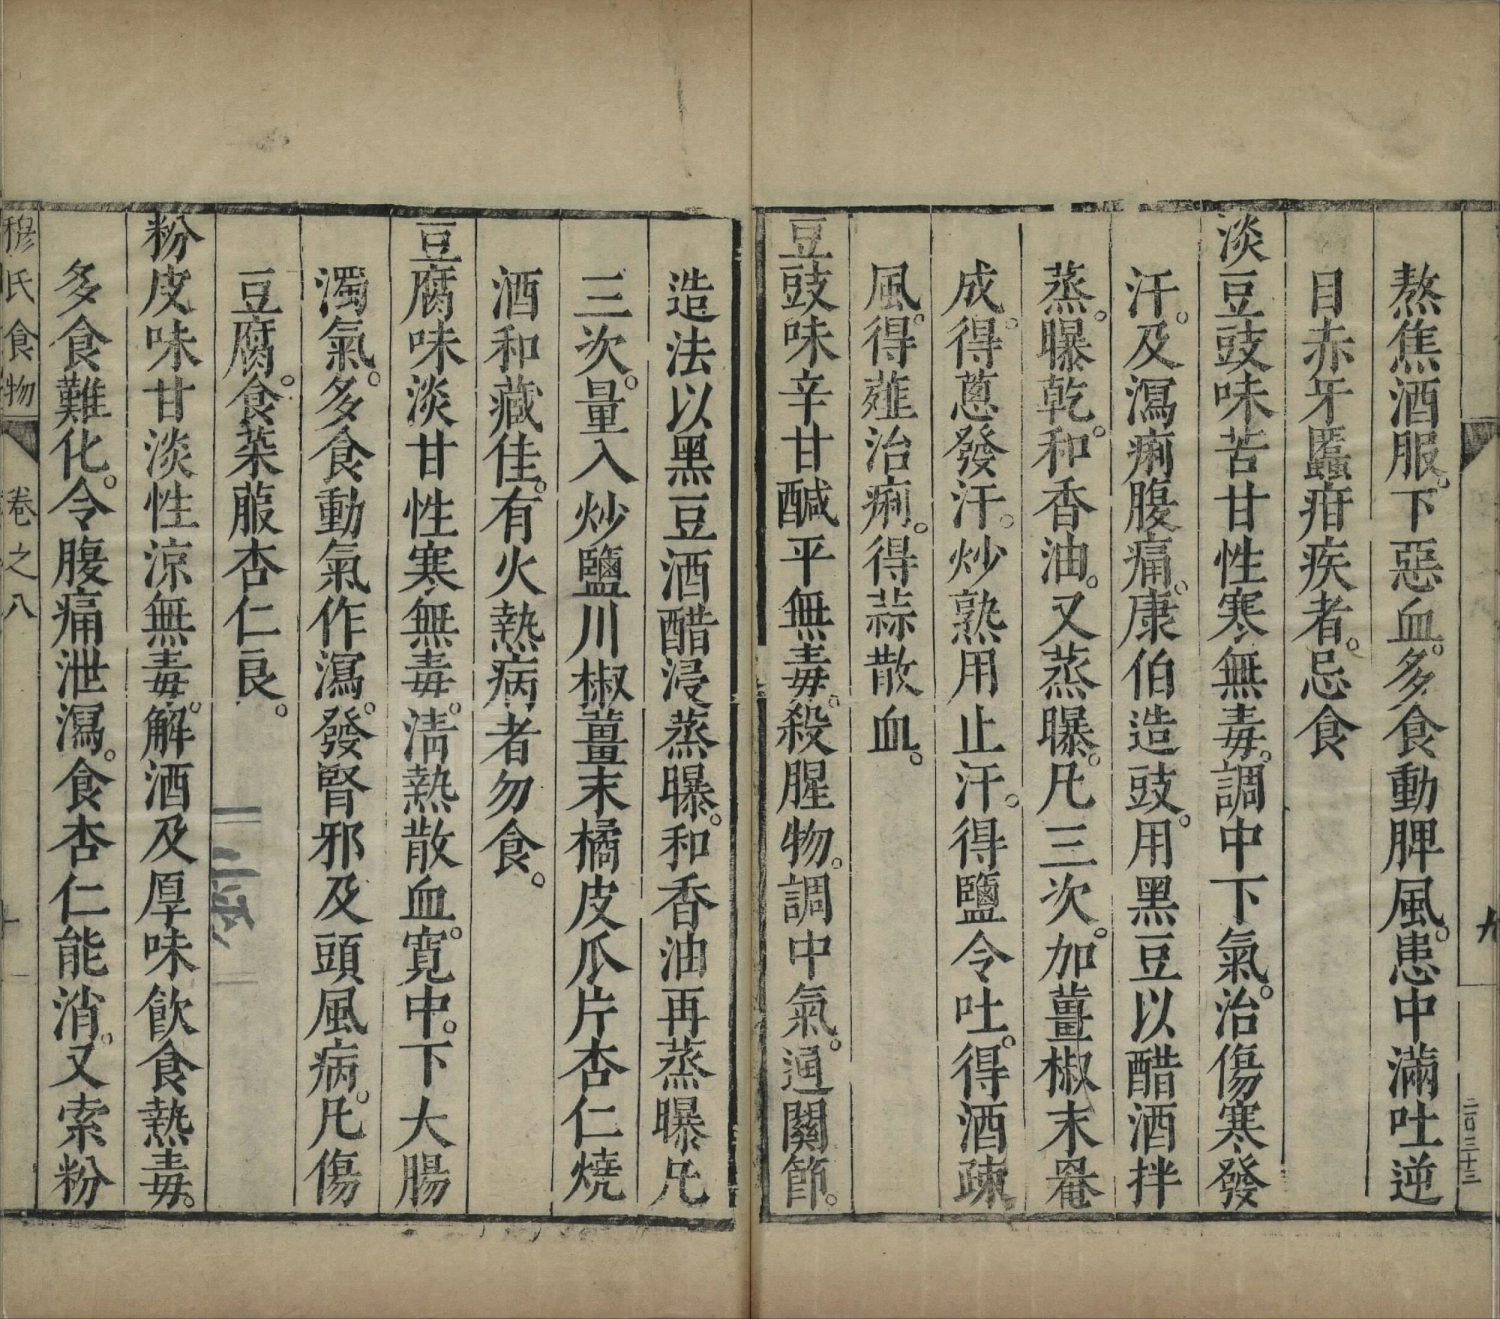 熬焦酒服。下惡血。多食動脾風。患中滿吐逆
目赤牙䘌疳疾者。忌食
淡豆豉味苦甘性寒無毒。調中下氣。治傷寒發
汗。及瀉痢腹痛。康伯造豉。用黑豆以醋酒拌
蒸。曝乾。和香油。又蒸曝。凡三次。加薑椒末罨
成。得蔥發汗。炒熟用止汗。得鹽令吐。得酒疎
風。得薤治痢。得蒜散血。
豆豉味辛甘醎平無毒。殺腥物。調中氣。通關節。
造法以黑豆酒醋浸蒸曝。和香油再蒸曝凡
三次。量入炒鹽川椒薑末橘皮瓜片杏仁燒
酒和藏佳。有火熱病者勿食。
豆腐味淡甘性寒無毒。淸熱散血。寬中。下大腸
濁氣。多食動氣作瀉。發腎邪及頭風病。凡傷
豆腐。食萊菔杏仁良。
粉皮味甘淡性涼無毒。解酒及厚味飮食熱毒。
多食難化。令腹痛泄瀉。食杏仁能消。又索粉
穆氏食物
卷之八
十
九
二百三十三